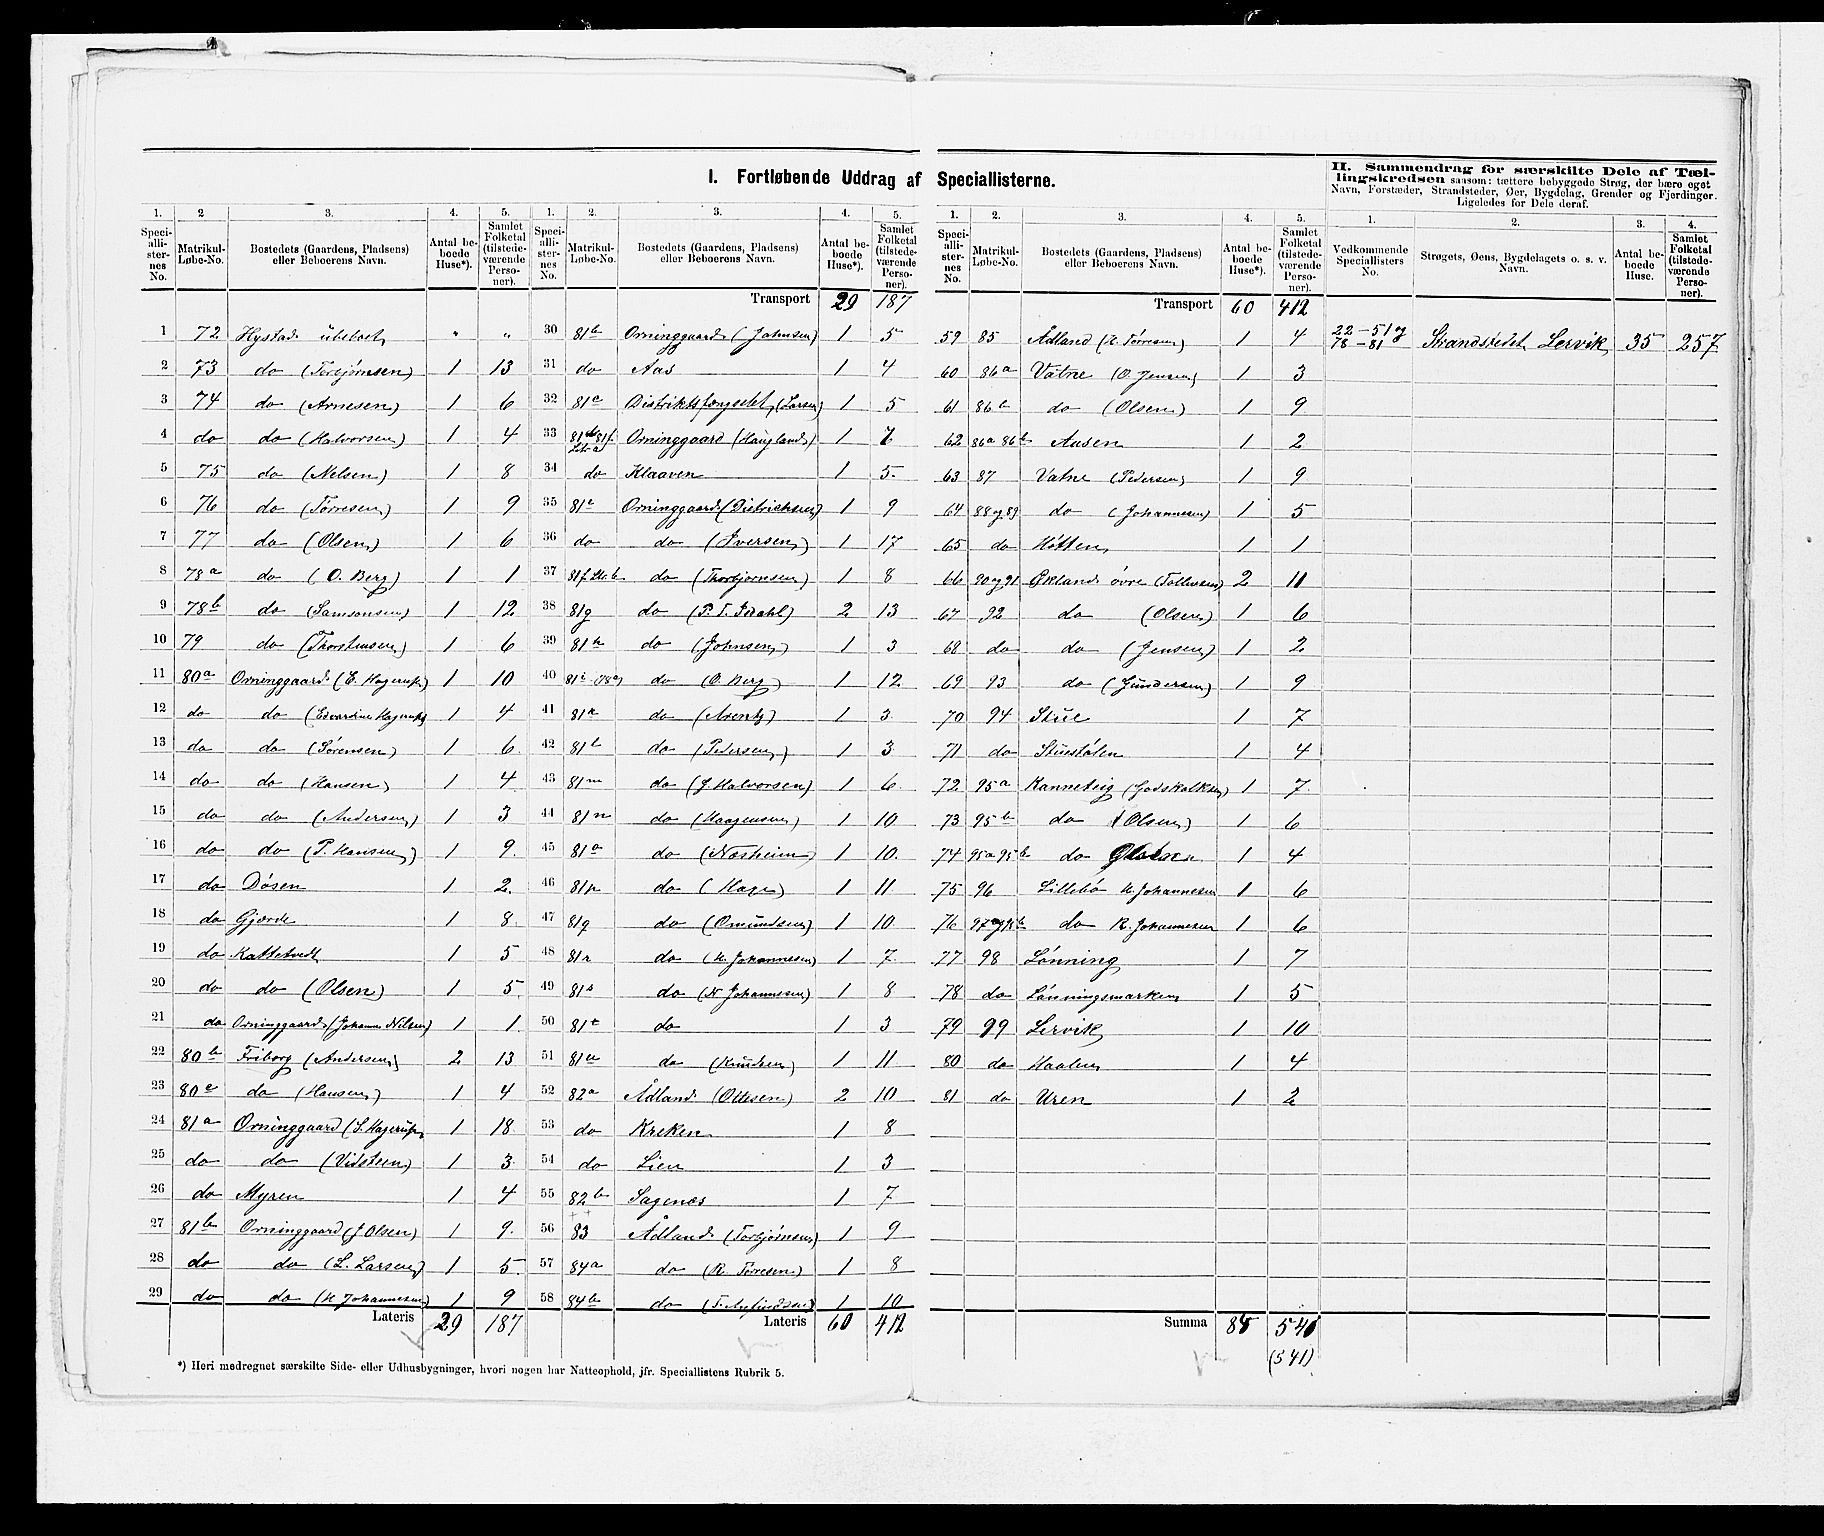 I. Fortløbende Uddrag af Speciallisterne.
II. Sammendrag for særskilte Dele af Tællingskredsen saasom: tættere bebyggede Strøg, der bære eget
Navn, Forstæder, Strandsteder, Øer, Bygdelag, Grender og Fjerdinger.
Ligeledes for Dele deraf.
1. 2 3. 4. 5.
Speciallisternes No. Matrikul-Løbe-No. Bostedets (Gaardens, Pladsens) eller Beboerens Navn. Antal beboede Huse*). Samlet Folketal (tilstedeværende Personer).
1 72 Hystad ubeboet " "
2 73 do (Torbjørnsen) 1 13
3 74 do (Arnesen) 1 6
4 do do (Halvorsen) 1 4
5 75 do (Nelsen) 1 8
6 76 do (Tørresen) 1 9
7 77 do (Olsen) 1 6
8 78a do (O. Berg) 1 1
9 78b do (Samsonsen) 1 12
10 79 do (Thorstensen) 1 6
11 80a Orninggaard (E. Hagerup) 1 10
12 do do (Edvardine Hagerup) 1 4
13 do do (Sørensen) 1 6
14 do do (Hansen) 1 4
15 do do (Andersen) 1 3
16 do do (P. Hansen) 1 9
17 do Døsen 1 2
18 do Gjærde 1 8
19 do Kattetvedt 1 5
20 do do (Olsen) 1 5
21 do Orninggaard (Johannes Nilsen) 1 1
22 80b Friborg (Andersen) 2 13
23 80c do (Hansen) 1 4
24 81a Orninggaard (S. Hagerup) 1 18
25 do do (Vidsteen) 1 3
26 do Myren 1 4
27 81b Orninggaard (J Olsen) 1 9
28 do do (L. Larsen) 1 5
29 do do (H Johannesen) 1 9
Lateris 29 187
1. 2. 3. 4. 5.
Speciallisternes No. Matrikul-Løbe-No. Bostedets (Gaardens, Pladsens) eller Beboerens Navn. Antal beboede Huse*). Samlet Folketal (tilstedeværende Personer).
Transport 29 187
30 81b Orninggaard (Johnsen) 1 5
31 do Aas 1 4
32 81c Distriktsfængselet (Larsen) 1 5
33 Orninggaard (Haugland) 1 7
34 do Klaaven 1 5
35 81e Orninggaard (Dietrichsen) 1 9
36 do do (Iversen) 1 17
37 81f Litr. b do (Thorbjørnsen) 1 8
38 81g do (P. T. Isdahl) 2 13
39 81h do (Johnsen) 1 3
40 81i-78a do (O. Berg) 1 12
41 81k do (Arentz) 1 3
42 81l do (Pedersen) 1 3
43 81m do (J. Halvorsen) 1 6
44 81n do (Haagensen) 1 10
45 81o do (Næsheim) 1 10
46 81p do (Hage) 1 11
47 81q do (Omundsen) 1 10
48 81r do (H Johannesen) 1 7
49 81s do (N Johannesen) 1 8
50 81t do 1 3
51 81u do (Knudsen) 1 11
52 82a Ådland (Ottesen) 2 10
53 do Kreken 1 8
54 do Lien 1 3
55 82b Sagenæs 1 7
56 83 Ådland (Torbjørnsen) 1 9
57 84a do (R. Tørresen) 1 8
58 84b do 1 10
Lateris 60 412
1. 2. 3. 4. 5.
Speciallisternes No. Matrikul-Løbe-No. Bostedets (Gaardens, Pladsens) eller Beboerens Navn. Antal beboede Huse*). Samlet Folketal (tilstedeværende Personer).
Transport 60 412
59 85 Ådland (H. Tørresen) 1 4
60 86a Vatne (O. Jensen) 1 3
61 86b do (Olsen) 1 9
62 86a 86b Aasen 1 2
63 87 Vatne (Pedersen) 1 9
64 88 og 89 do (Johannesen) 1 5
65 do Hótten 1 1
66 90 og 91 Økland øvre (Tollevsen) 2 11
67 92 do (Olsen) 1 6
68 do do (Jensen) 1 2
69 93 do (Gundersen) 1 9
70 94 Stue 1 7
71 do Stuestølen 1 4
72 95a Kanneteig (Godskalksen) 1 7
73 95b do (Olsen) 1 6
74 95a 95b do 1 4
75 96 Lillebø H Johannesen 1 6
76 do R. Johannesen 1 6
77 98 Lønning 1 7
78 do Lønningsmarken 1 5
79 99 Lervik 1 10
80 do Haalen 1 4
81 do Uren 1 2
Summa 85 540
(541)
1. 2. 3. 4.
Vedkommende Speciallisters No. Strøgets, Øens, Bygdelagets o. s. v. Navn. Antal beboede Huse. Samlet Folketal (tilstedeværende Personer).
22-51 og 78-81 Strandstedet Lervik 35 257
*) Heri medregnet særskilte Side- eller Udhusbygninger, hvori nogen har Natteophold, jfr. Speciallistens Rubrik 5.